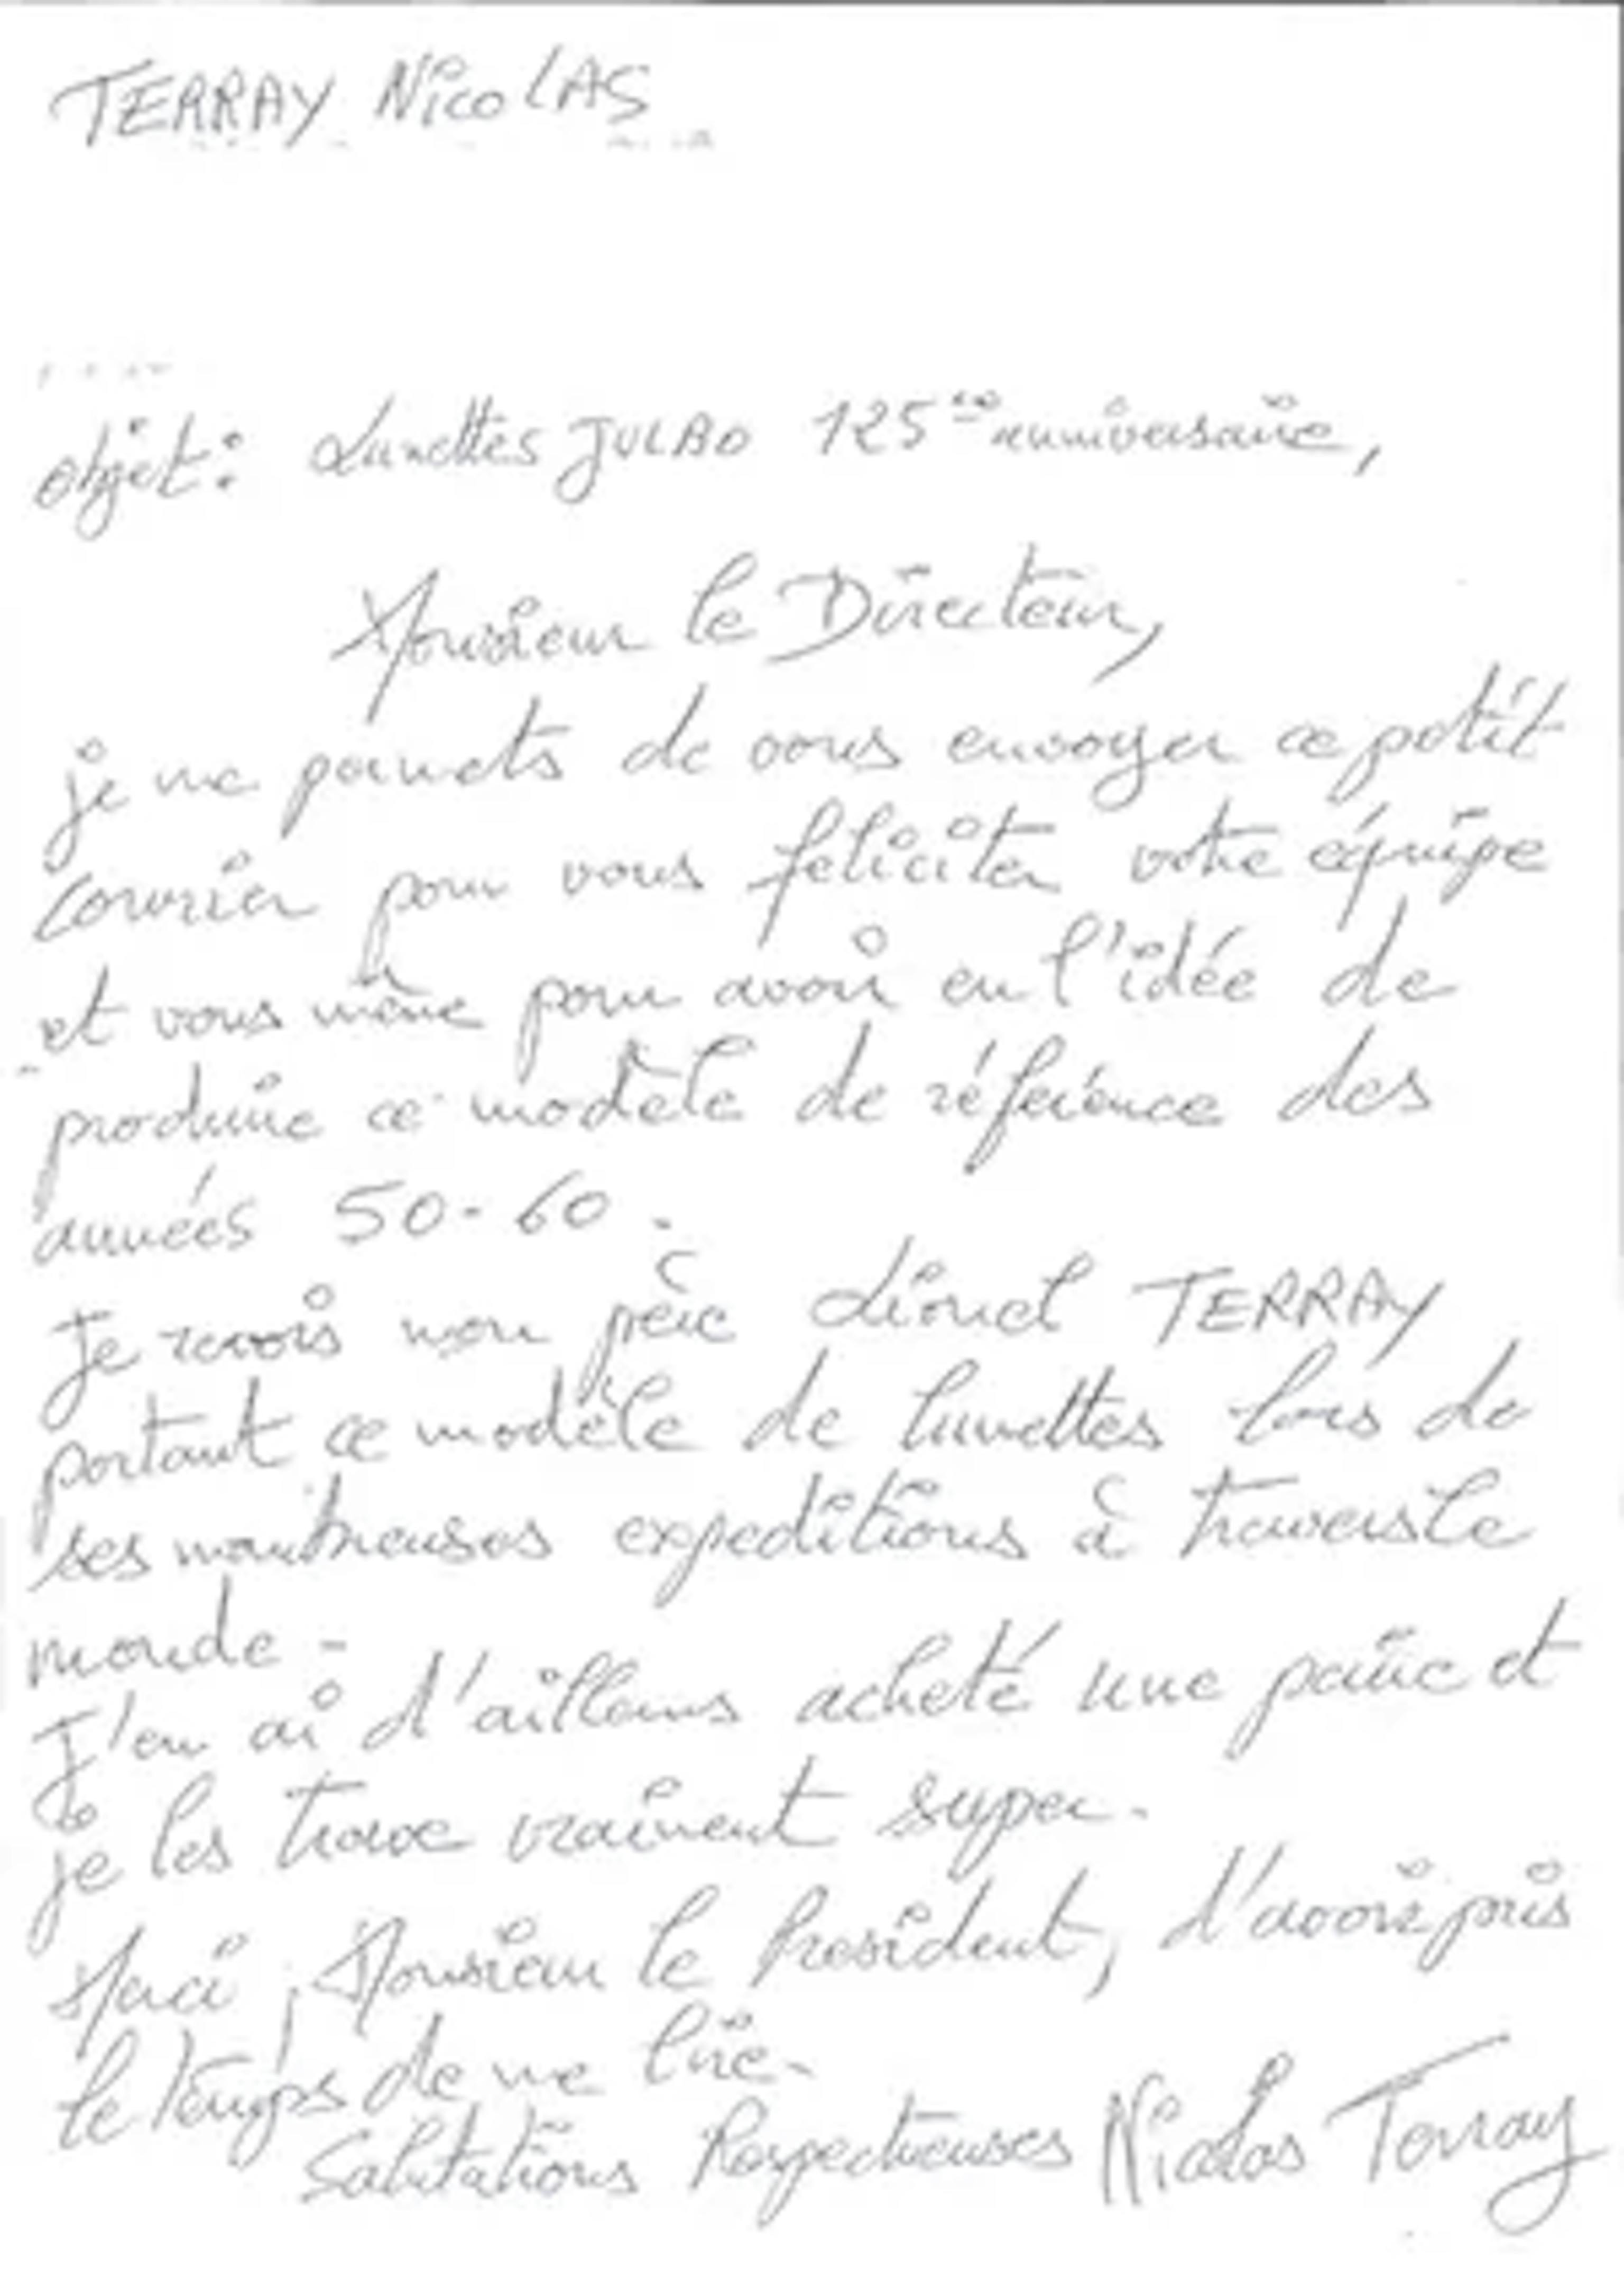 TERRAY NicolAS
objet : Lunettes JULBO 125ème anniversaire,
Monsieur le Directeur,
je me permets de vous envoyer ce petit
courrier pour vous feliciter votre équipe
et vous même pour avoir eu l'idée de
produire ce modèle de référence des
années 50-60.
Je revois mon père Lionel TERRAY
portant ce modèle de lunettes lors de
ses nombreuses expeditions à travers le
monde -
J'en ai d'ailleurs acheté une paire et
je les trouve vraiment super.
Merci, Monsieur le President, d'avoir pris
le temps de me lire.
Salutations Respectueuses Nicolas Terray